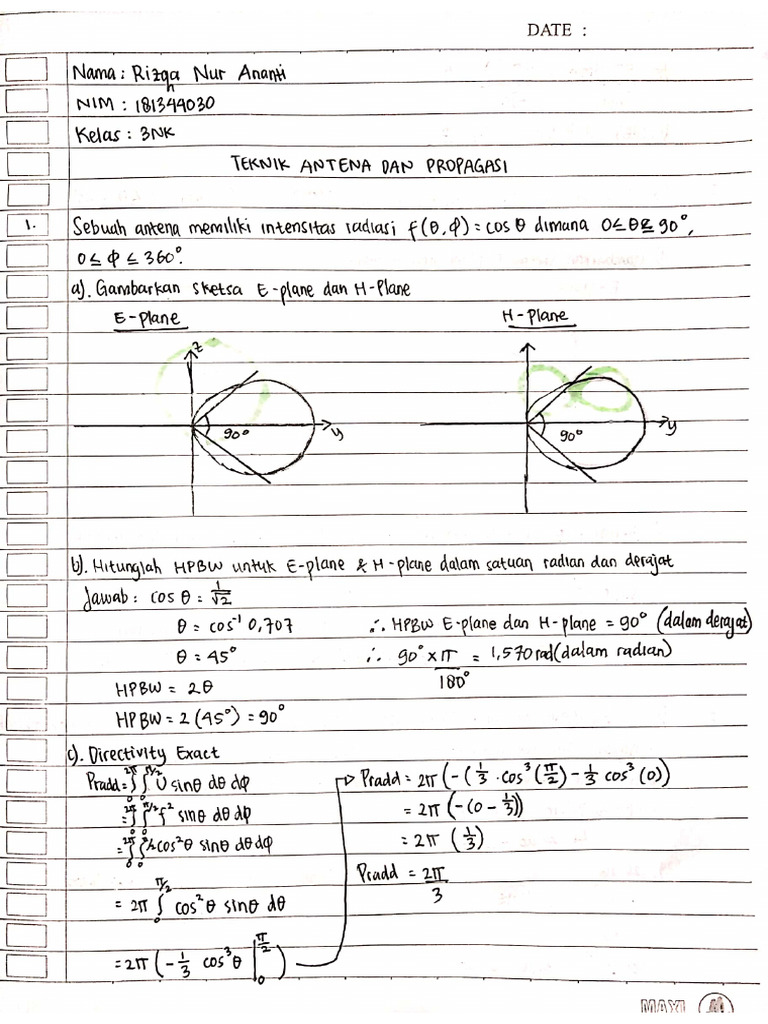 DATE :
Nama : Rizqa Nur Ananti
NIM : 181344030
Kelas : 3NK
TEKNIK ANTENA DAN PROPAGASI
1. Sebuah antena memiliki intensitas radiasi f(θ,φ) = cos θ dimana 0≤θ≤90°,
0 ≤ φ ≤ 360°.
a). Gambarkan sketsa E-plane dan H-Plane
E-Plane H-Plane
z
90° y 90° y
b). Hitunglah HPBW untuk E-plane & H-plane dalam satuan radian dan derajat
Jawab : cos θ = 1/√2
θ = cos⁻¹ 0,707 ∴ HPBW E-plane dan H-plane = 90° (dalam derajat)
θ = 45° ∴ 90° × π / 180° = 1,570 rad (dalam radian)
HPBW = 2θ
HPBW = 2 (45°) = 90°
c). Directivity Exact
Pradd = ∫₀^2π ∫₀^π/2 U sinθ dθ dφ
= ∫₀^2π ∫₀^π/2 f² sinθ dθ dφ
= ∫₀^2π ∫₀^π/2 cos²θ sinθ dθ dφ
= 2π ∫₀^π/2 cos²θ sinθ dθ
= 2π (-1/3 cos³θ |₀^π/2)
Pradd = 2π (-(1/3 · cos³(π/2) - 1/3 cos³(0))
= 2π (-(0 - 1/3))
= 2π (1/3)
Pradd = 2π/3
MAXI